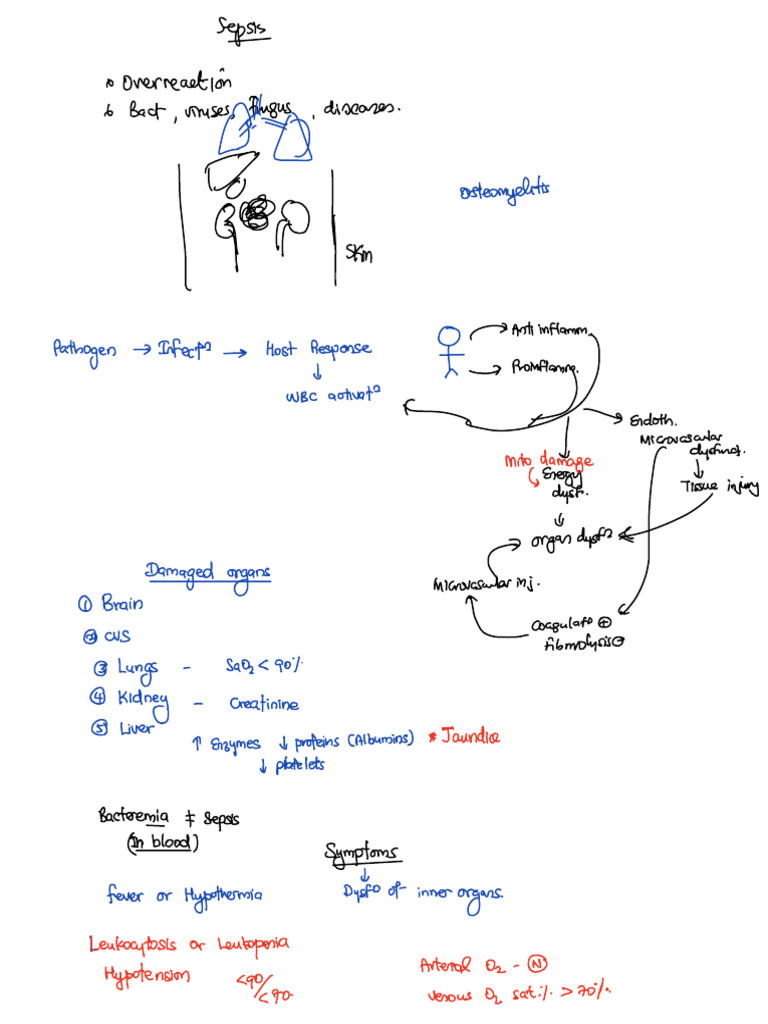 Sepsis
Overreaction
Bact, viruses, Fungus, diseases.
Osteomyelitis
Skin
Pathogen → Infectⁿ → Host Response
↓
WBC activatⁿ
Anti inflamm.
Proinflamm.
Endoth.
Microvascular
dysfunct.
↓
Tissue injury
Mito damage
Energy
dysf.
↓
organ dysfⁿ
Microvascular inj.
Coagulatⁿ ⊕
Fibrinolysis ⊖
Damaged organs
① Brain
② CVS
③ Lungs - SaO₂ < 90%
④ Kidney - Creatinine
⑤ Liver
↑ Enzymes ↓ proteins (Albumins) * Jaundice
↓ platelets
Bacteremia ≠ Sepsis
(In blood)
Symptoms
↓
Dysfⁿ of inner organs.
fever or Hypothermia
Leukocytosis or Leukopenia
Hypotension <90/<70.
Arterial O₂ - Ⓝ
Venous O₂ sat% > 70%.